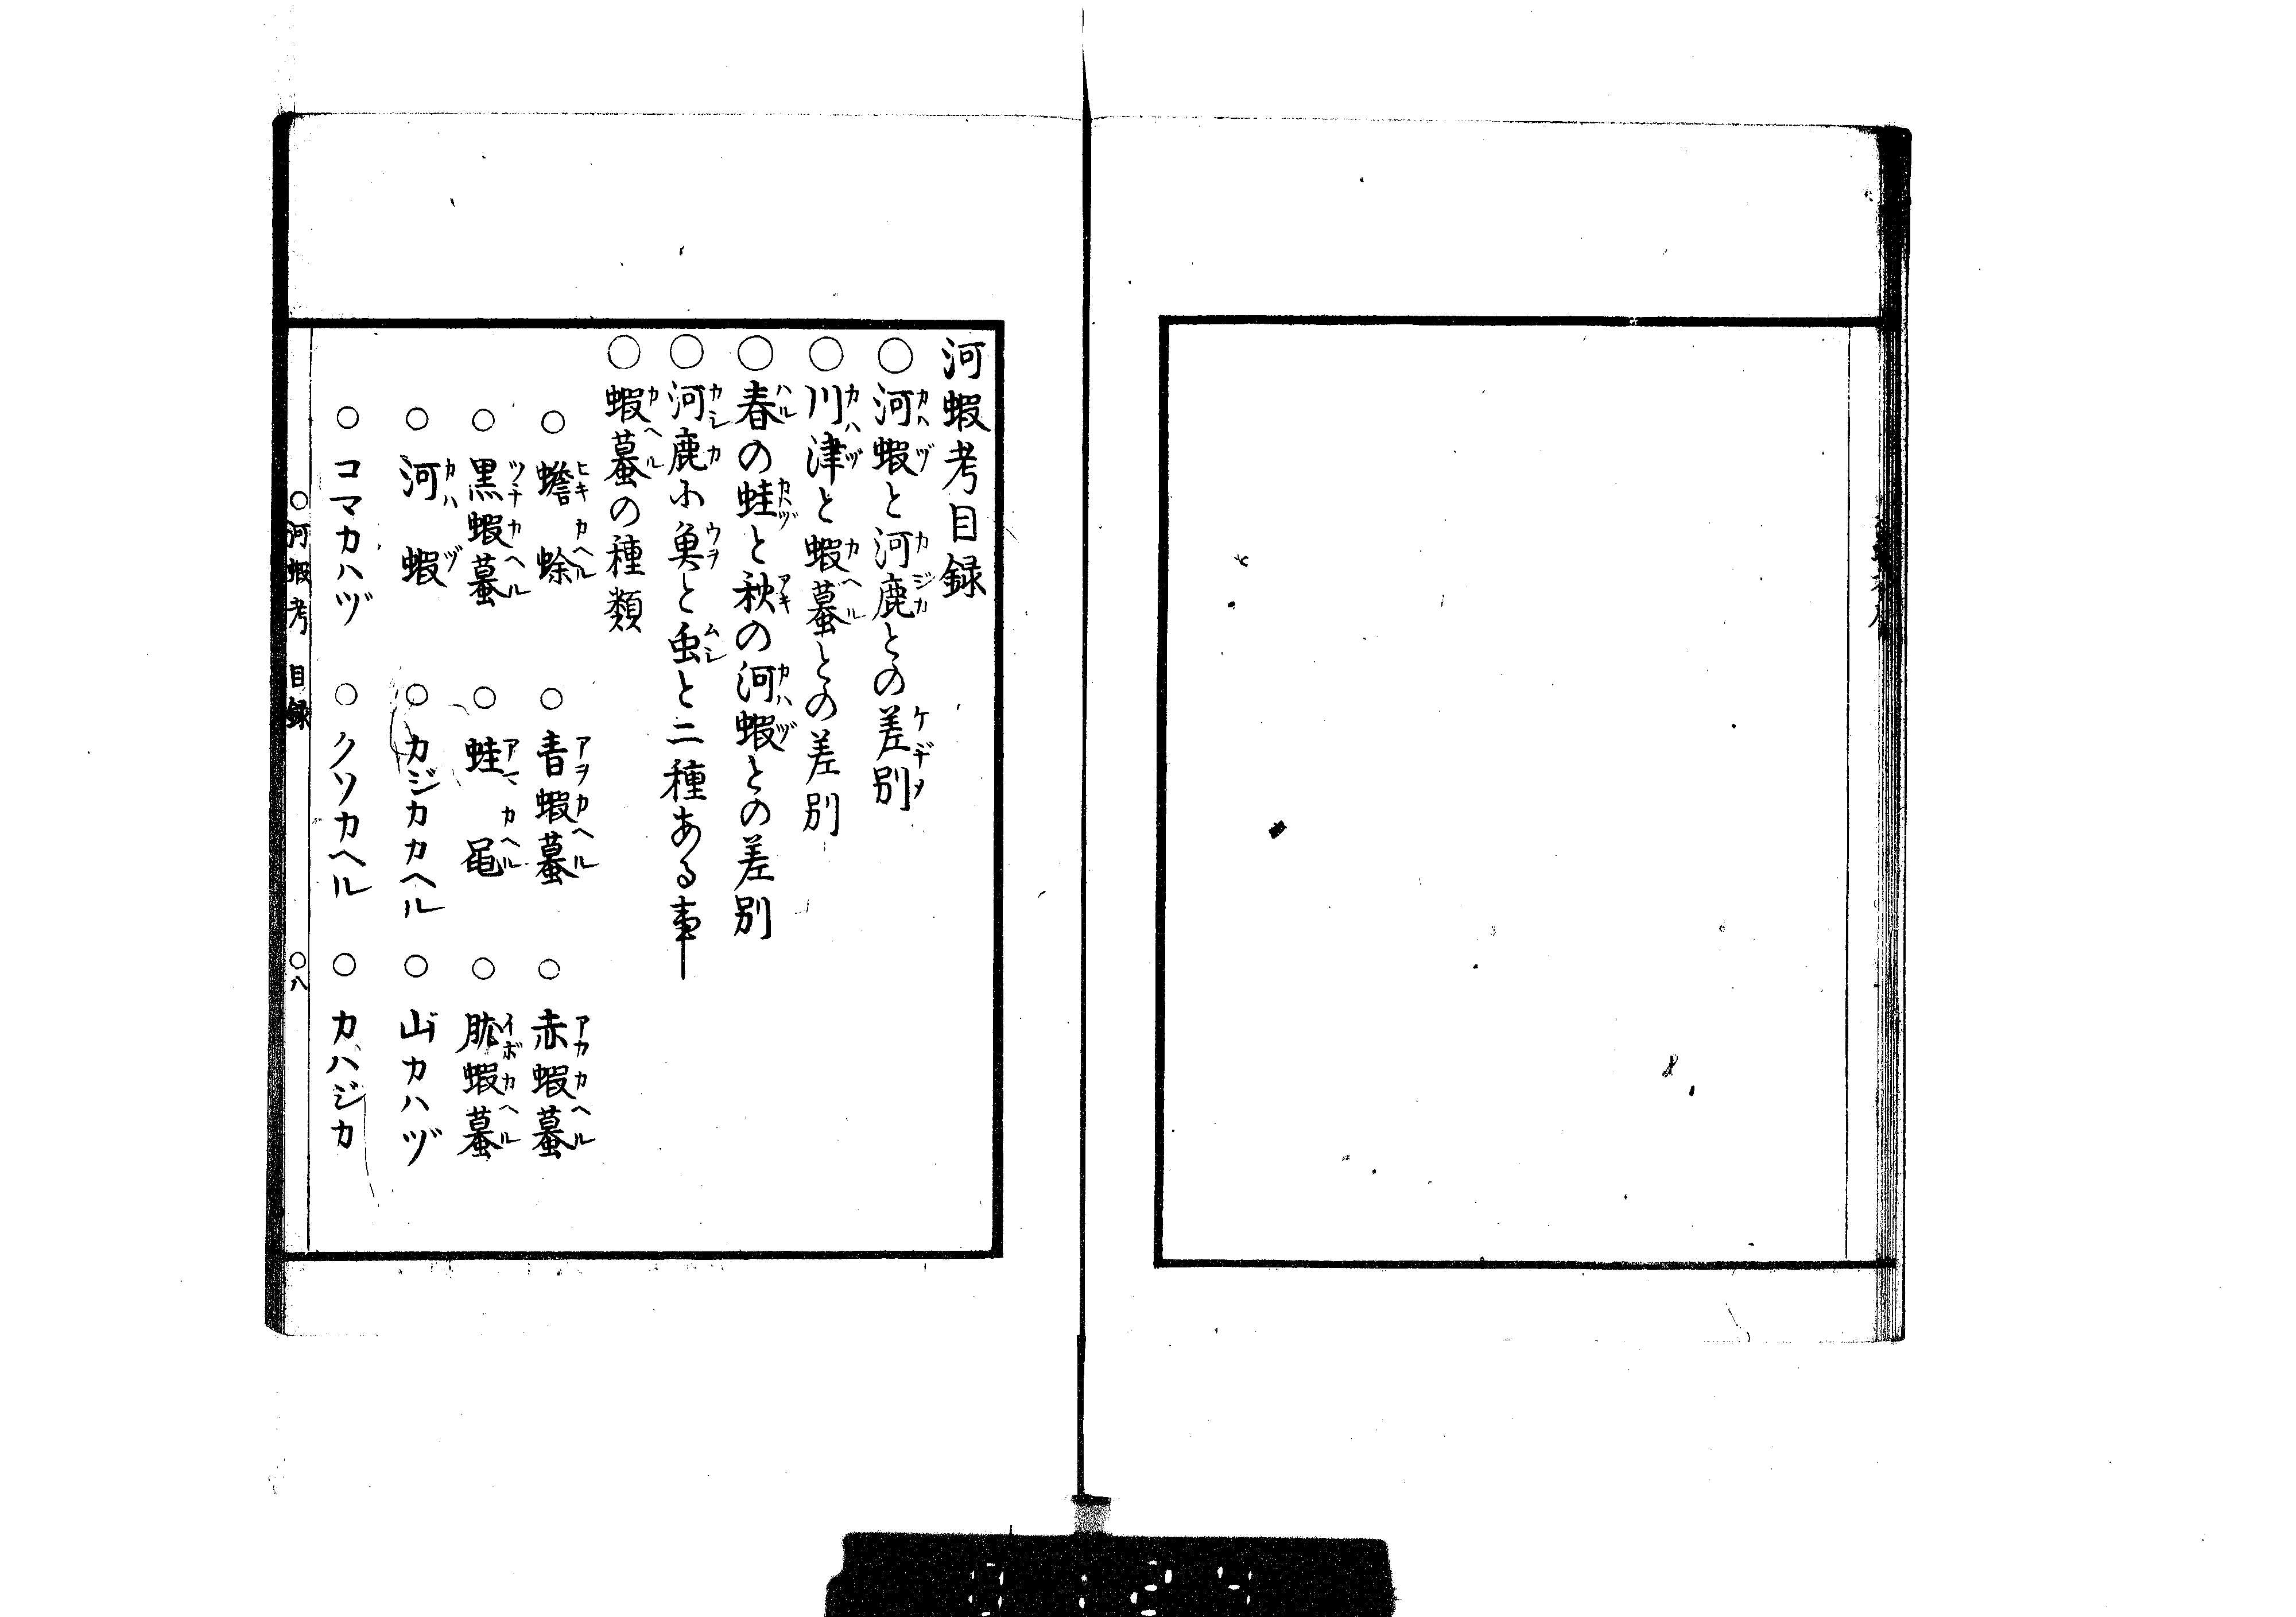 河蝦考目録
○河蝦と河鹿との差別
○川津と蝦蟇との差別
○春の蛙と秋の河蝦との差別
○河鹿小魚と虫と二種ある事
○蝦蟇の種類
○蟾蜍 ○青蝦蟇 ○赤蝦蟇
○黒蝦蟇 ○蛙黽 ○肬蝦蟇
○河蝦 ○カジカカヘル ○山カハヅ
○コマカハヅ ○クソカヘル ○カバジカ
○河蝦考 目録 ○八